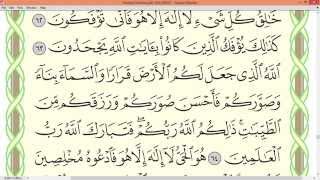 خَٰلِقُ كُلِّ شَىْءٍ لَّآ إِلَٰهَ إِلَّا هُوَ فَأَنَّىٰ تُؤْفَكُونَ ٦٢
كَذَٰلِكَ يُؤْفَكُ ٱلَّذِينَ كَانُوا۟ بِـَٔايَٰتِ ٱللَّهِ يَجْحَدُونَ ٦٣
ٱللَّهُ ٱلَّذِى جَعَلَ لَكُمُ ٱلْأَرْضَ قَرَارًا وَٱلسَّمَآءَ بِنَآءً
وَصَوَّرَكُمْ فَأَحْسَنَ صُوَرَكُمْ وَرَزَقَكُم مِّنَ
ٱلطَّيِّبَٰتِ ۚ ذَٰلِكُمُ ٱللَّهُ رَبُّكُمْ ۖ فَتَبَارَكَ ٱللَّهُ رَبُّ
ٱلْعَٰلَمِينَ ٦٤ هُوَ ٱلْحَىُّ لَآ إِلَٰهَ إِلَّا هُوَ فَٱدْعُوهُ مُخْلِصِينَ